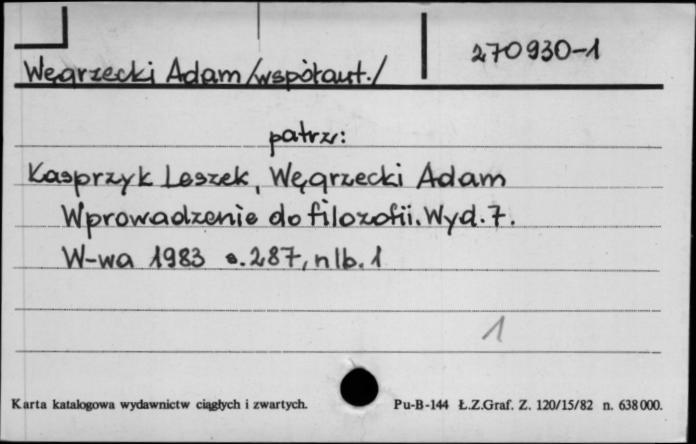 270930-1
Węgrzecki Adam /współaut./
patrz:
Kasprzyk Leszek, Węgrzecki Adam
Wprowadzenie do filozofii. Wyd. 7.
W-wa 1983 s. 287, nlb. 1
1
Karta katalogowa wydawnictw ciągłych i zwartych. Pu-B-144 Ł.Z.Graf. Z. 120/15/82 n. 638000.